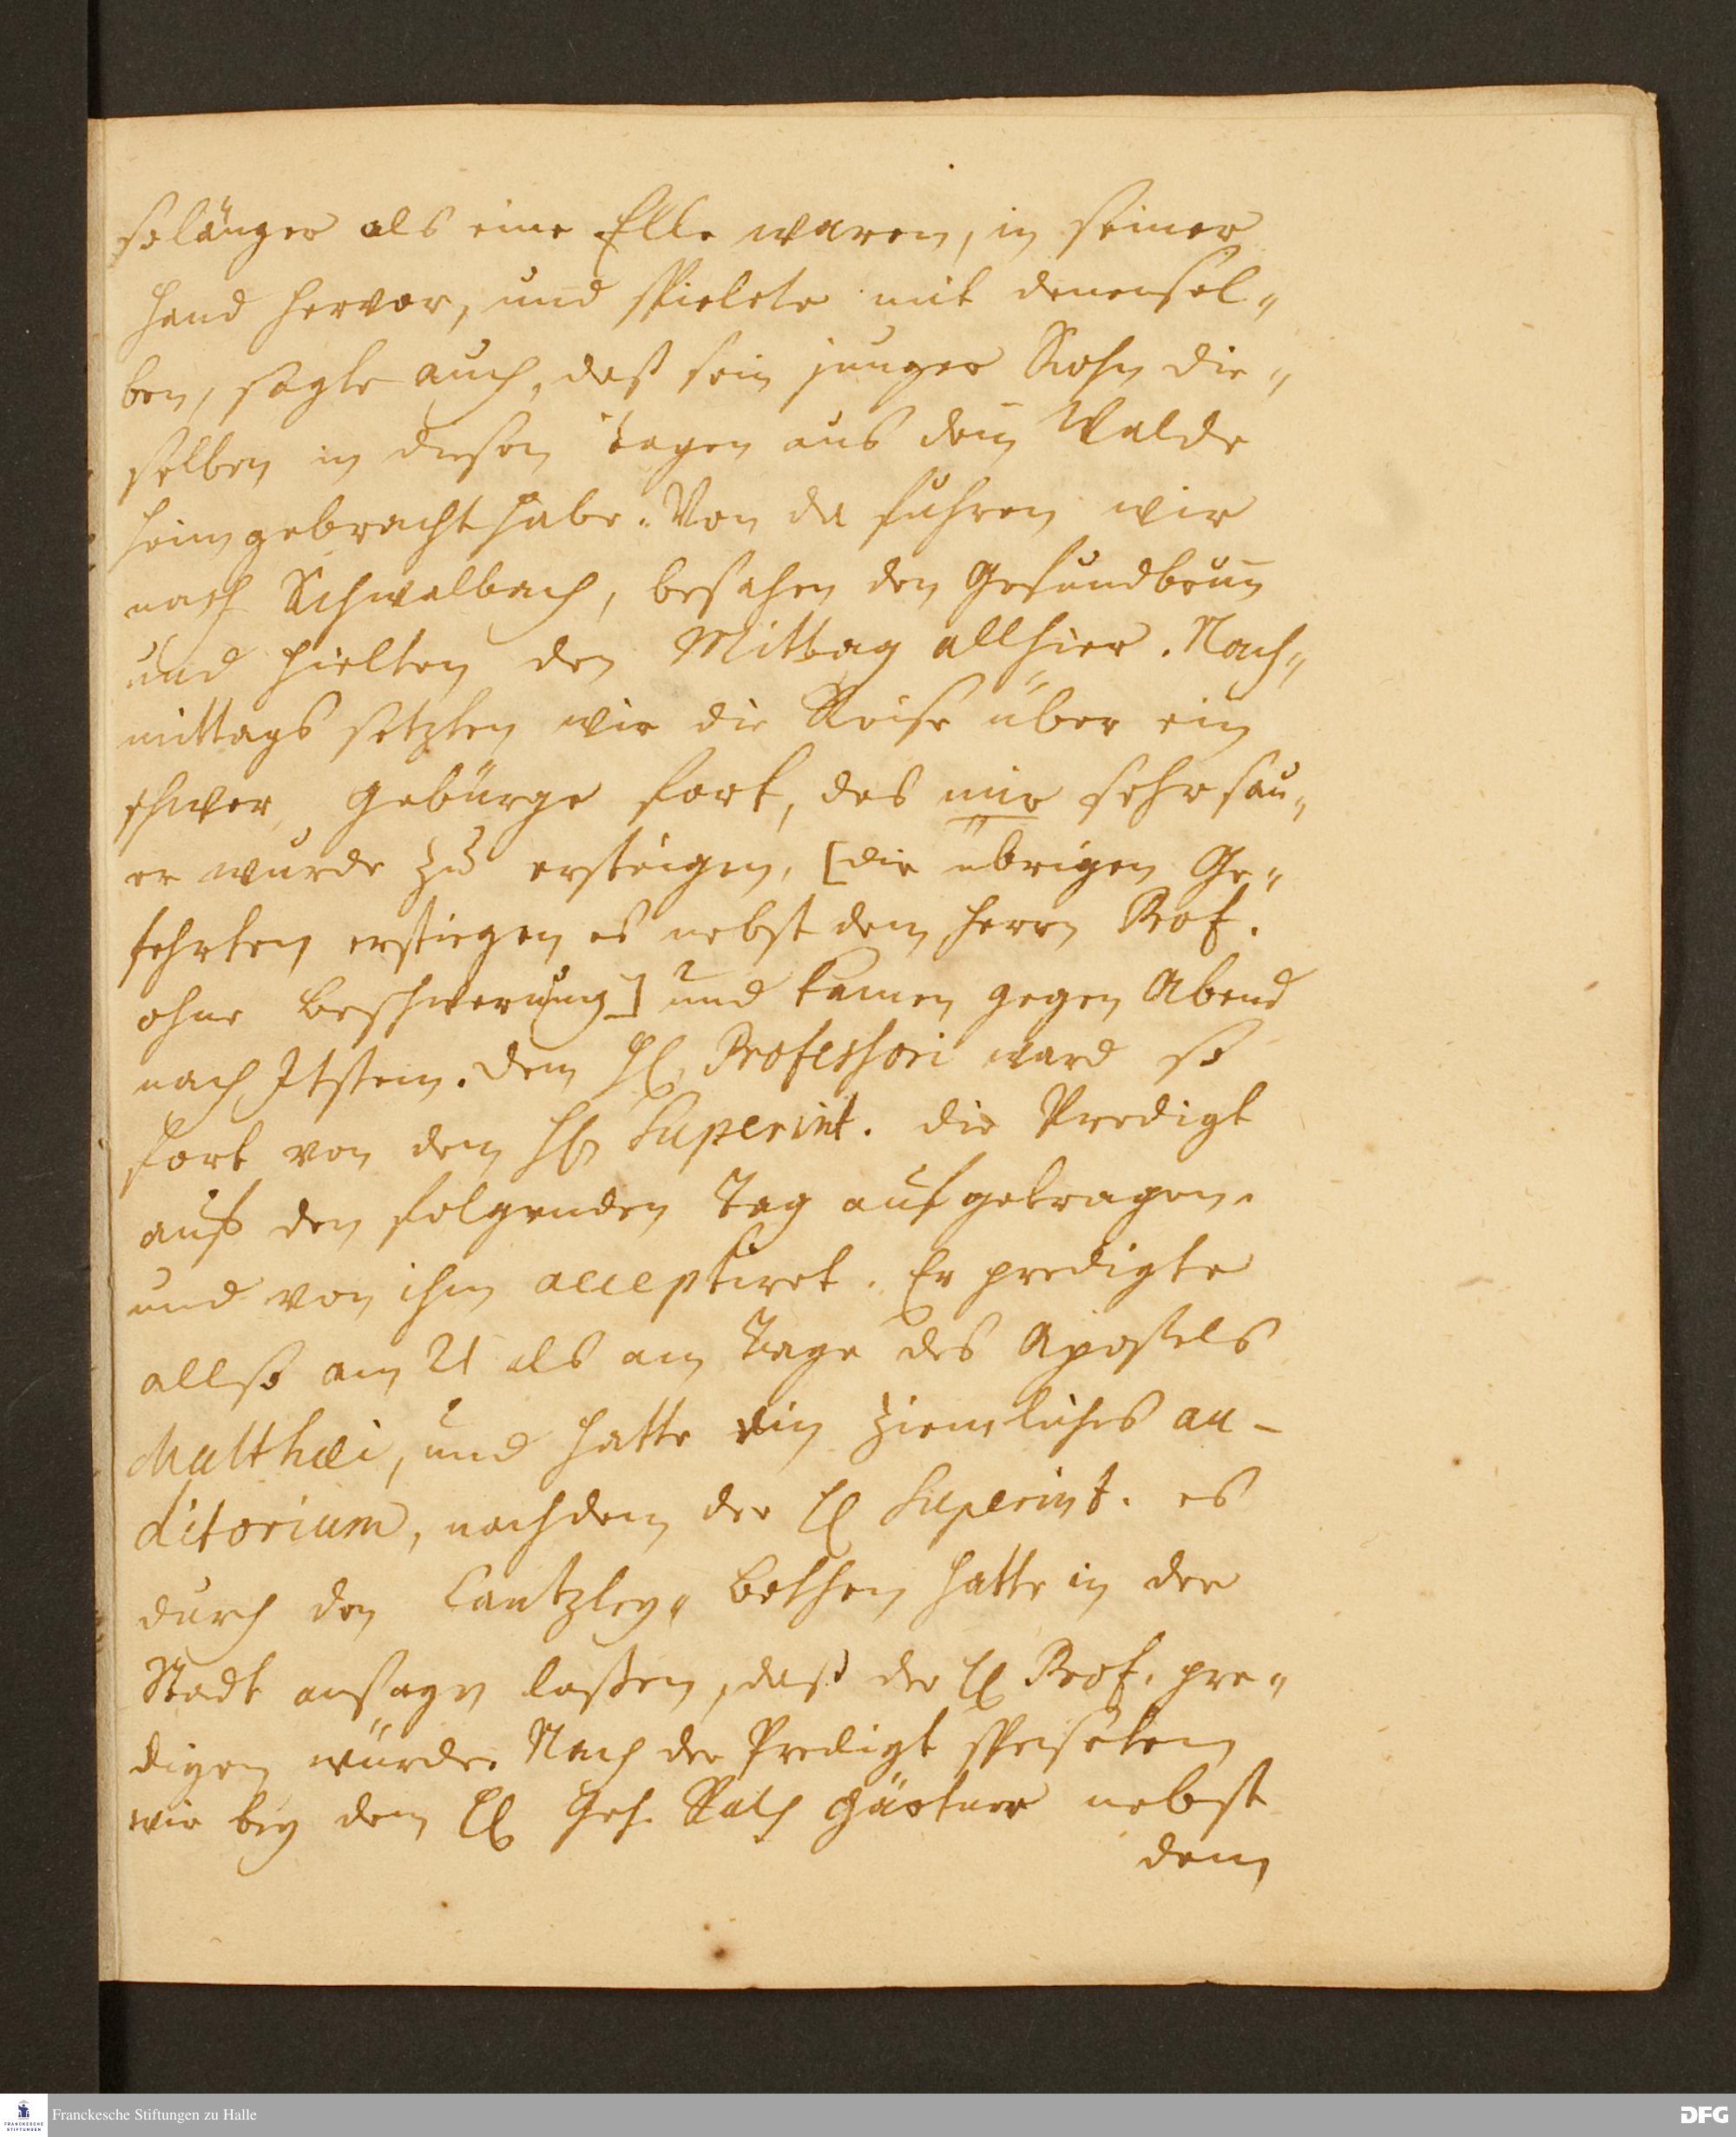 so länger als eine Elle waren, in seiner
Hand hervor, und spielete mit denensel-
ben, sagte auch, daß sein junger Sohn die-
selben in diesen Tagen aus dem̅ Walde
heim gebracht habe. Von da fuhren wir
nach Schwalbach, besahen den Gesundbrun̅
und hielten den Mittag allhier. Nach-
mittags setzten wir die Reise über ein
schwer Gebürge fort, das mir sehr sau-
er wurde zu ersteigen, [die übrigen Ge-
fehrten erstiegen es nebst dem Herrn Prof.
ohne Beschwerung] und kamen gegen Abend
nach Itstein. Dem H. Professori ward so
fort von dem H. Superint. die Predigt
auf den folgenden Tag aufgetragen.
und von ihm acceptiret. Er predigte
allso am 21 als am Tage des Apostels
Matthæi, und hatte ein ziemliches au-
ditorium, nachdem der H. Superint. es
durch den Cantzley- Bothen hatte in der
Stadt ansagen laßen, daß der H. Prof. pre-
digen würde. Nach der Predigt speiseten
wir bey dem H. Geh. Rath Gärtner nebst
dem
Franckesche Stiftungen zu Halle
FRANCKESCHE STIFTUNGEN
DFG